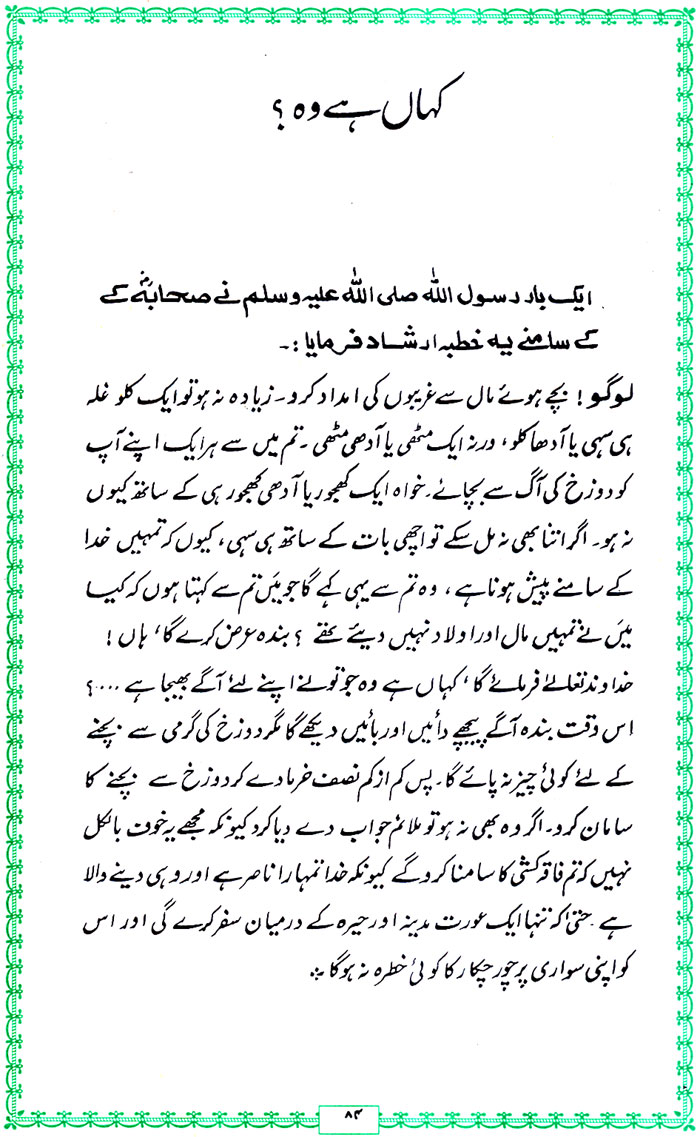 کہاں ہے وہ ؟
ایک بار رسول اللہ صلی اللہ علیہ وسلم نے صحابہؓ کے
کے سامنے یہ خطبہ ارشاد فرمایا :۔
لوگو ! بچے ہوئے مال سے غریبوں کی امداد کرو۔ زیادہ نہ ہو تو ایک کلو غلہ
ہی سہی یا آدھا کلو ، ورنہ ایک مٹھی یا آدھی مٹھی ۔ تم میں سے ہر ایک اپنے آپ
کو دوزخ کی آگ سے بچائے۔ خواہ ایک کھجور یا آدھی کھجور ہی کے ساتھ کیوں
نہ ہو۔ اگر اتنا بھی نہ مل سکے تو اچھی بات کے ساتھ ہی سہی ، کیوں کہ تمہیں خدا
کے سامنے پیش ہونا ہے ، وہ تم سے یہی کہے گا جو میں تم سے کہتا ہوں کہ کیا
میں نے تمہیں مال اور اولاد نہیں دیئے تھے ؟ بندہ عرض کرے گا ، ہاں !
خداوند تعالےٰ فرمائے گا ، کہاں ہے وہ جو تو نے اپنے لئے آگے بھیجا ہے ....؟
اس وقت بندہ آگے پیچھے دائیں اور بائیں دیکھے گا مگر دوزخ کی گرمی سے بچنے
کے لئے کوئی چیز نہ پائے گا۔ پس کم از کم نصف خرما دے کر دوزخ سے بچنے کا
سامان کرو۔ اگر وہ بھی نہ ہو تو ملائم جواب دے دیا کرو کیونکہ مجھے یہ خوف بالکل
نہیں کہ تم فاقہ کشی کا سامنا کرو گے کیونکہ خدا تمہارا ناصر ہے اور وہی دینے والا
ہے حتیٰ کہ تنہا ایک عورت مدینہ اور حیرہ کے درمیان سفر کرے گی اور اس
کو اپنی سواری پر چور چکار کا کوئی خطرہ نہ ہوگا ؞
۸۴